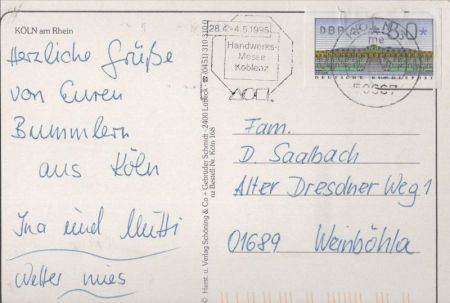 KÖLN am Rhein
Herzliche Grüße
von Euren
Bummlern
aus Köln
Ina und Mutti
Wetter mies
Herst. u. Verlag Schöning & Co + Gebrüder Schmidt · 2400 Lübeck · ☎ (0451) 310 310
nz Bestell-Nr. Köln 168
28.4.-4.5.1995
Handwerks-
Messe
Koblenz
DBP
80*
DEUTSCHE BUNDESPOST
50667
Fam.
D. Saalbach
Alter Dresdner Weg 1
01689 Weinböhla